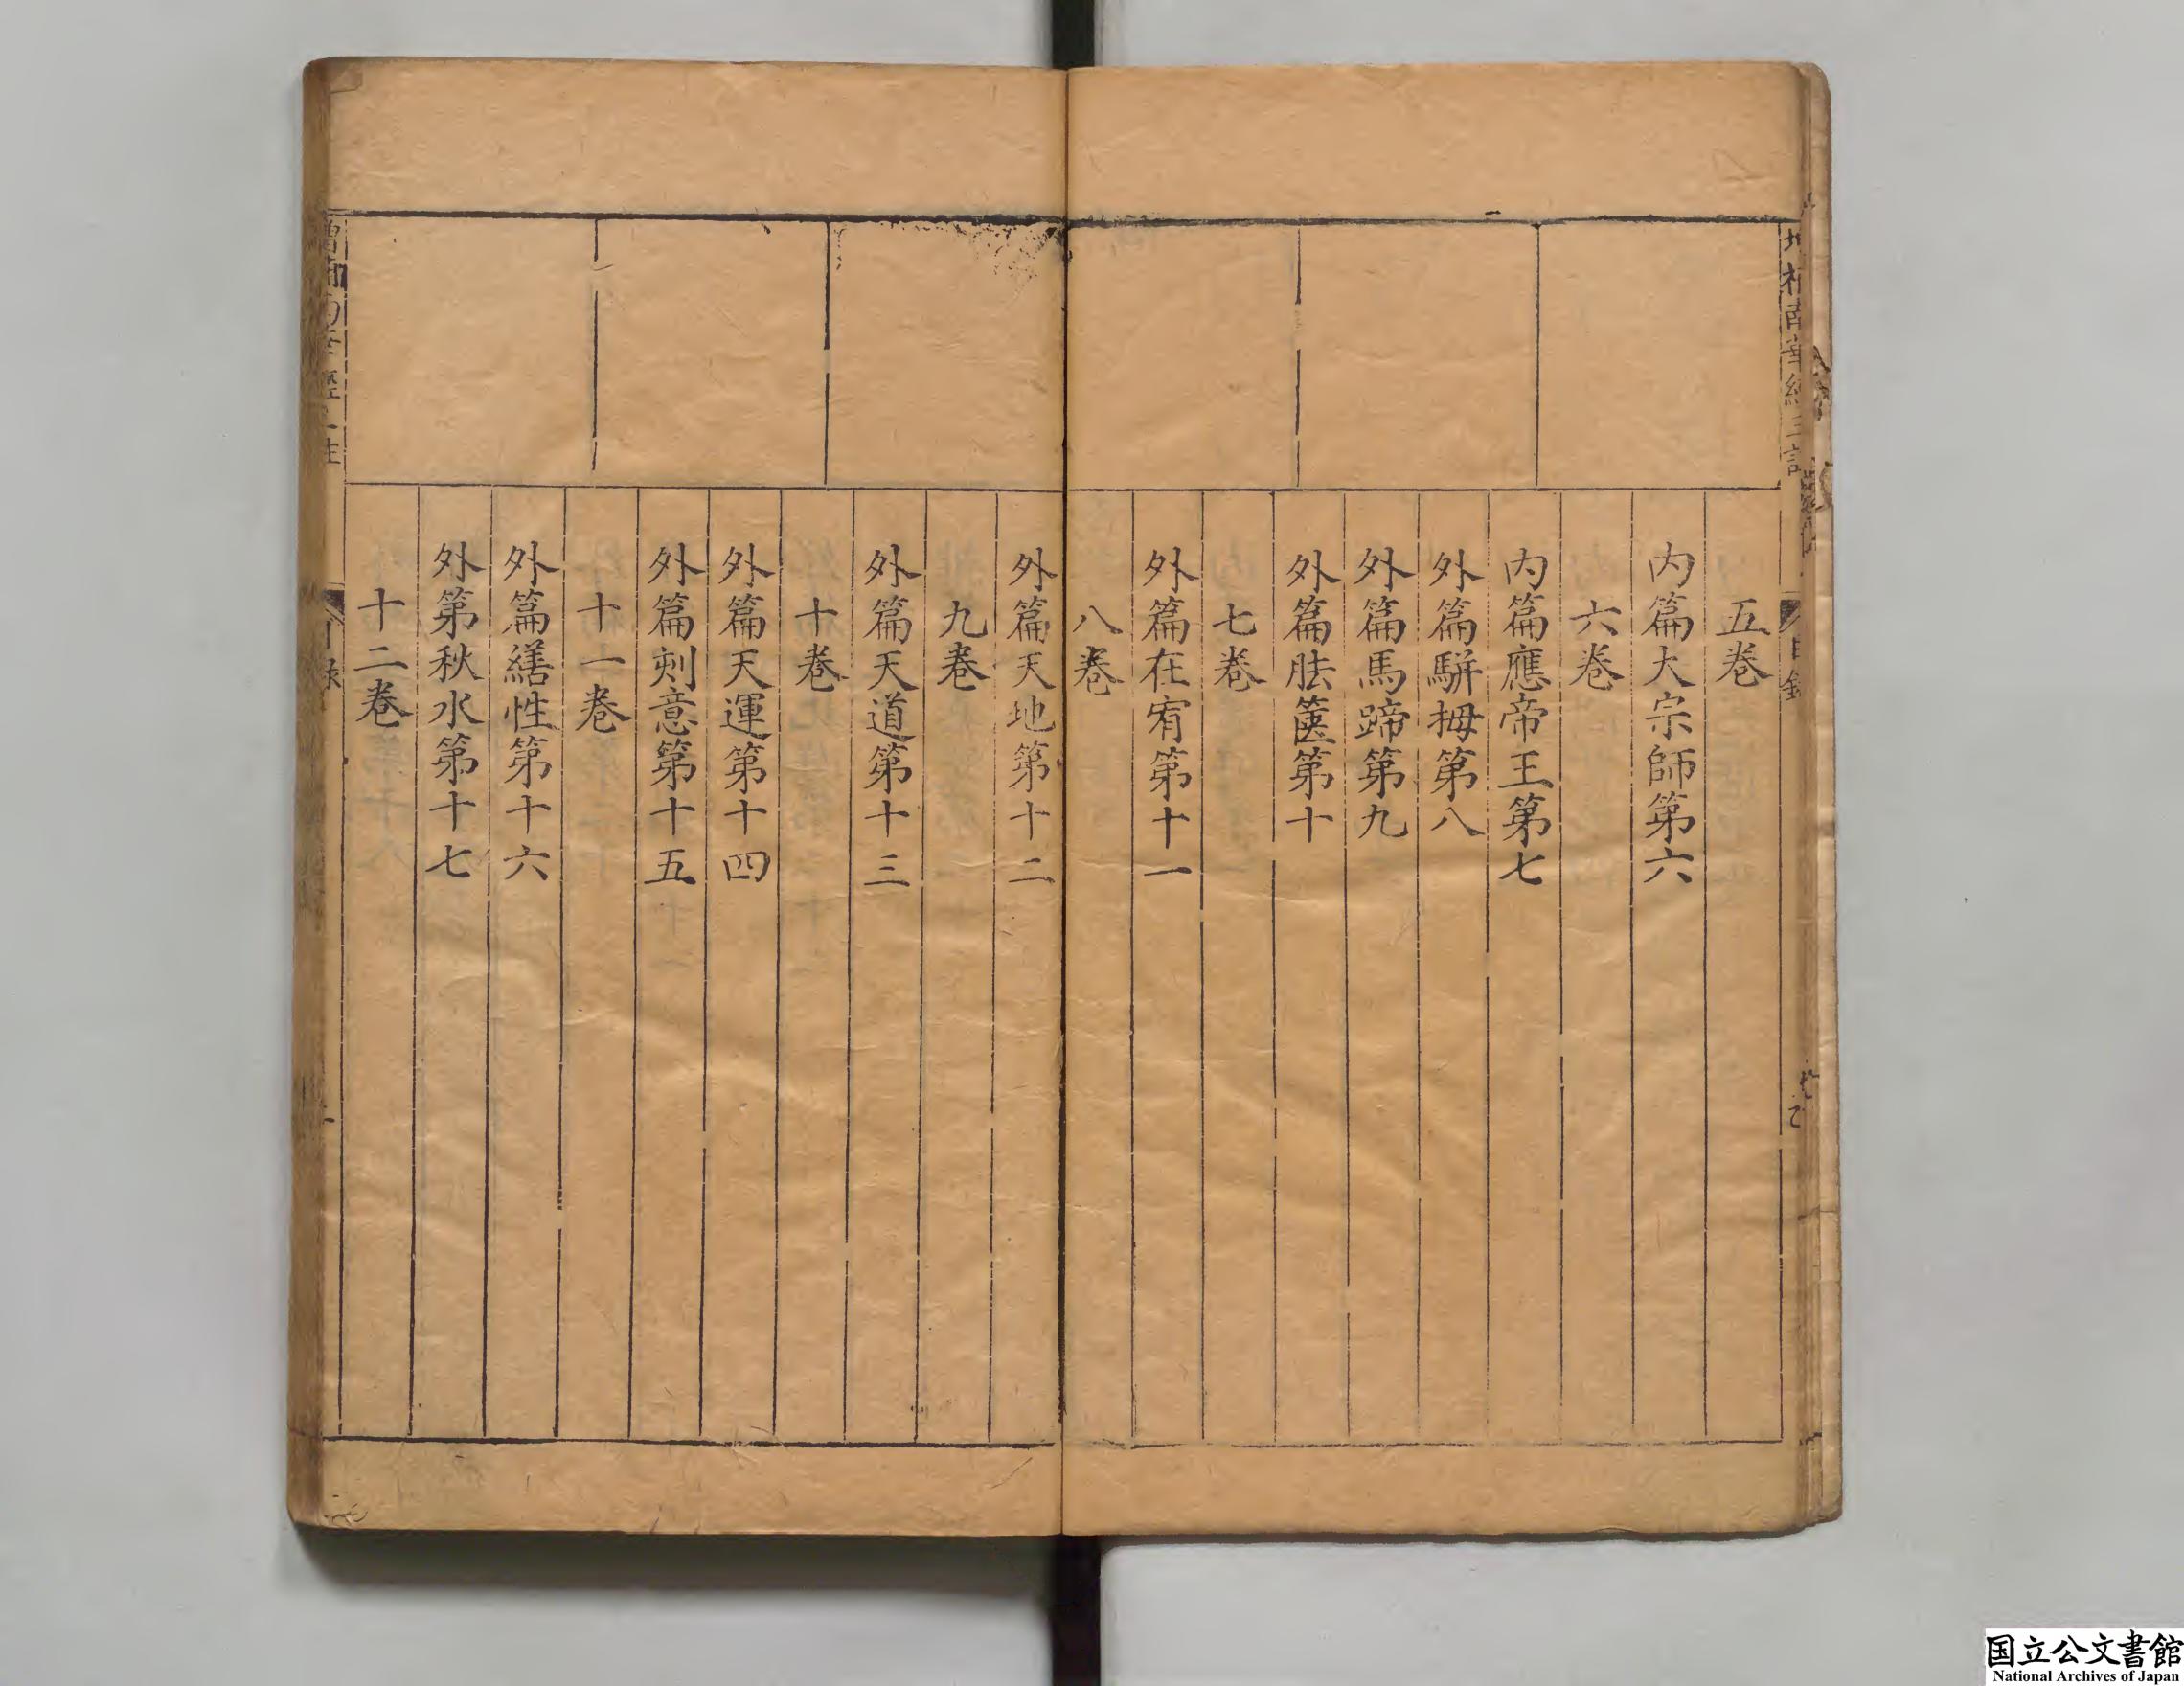 五巻
内篇大宗師第六
六巻
内篇應帝王第七
外篇駢拇第八
外篇馬蹄第九
外篇胠篋第十
七巻
外篇在宥第十一
八巻
外篇天地第十二
九巻
外篇天道第十三
十巻
外篇天運第十四
外篇刻意第十五
十一巻
外篇繕性第十六
外第秋水第十七
十二巻
国立公文書館
National Archives of Japan